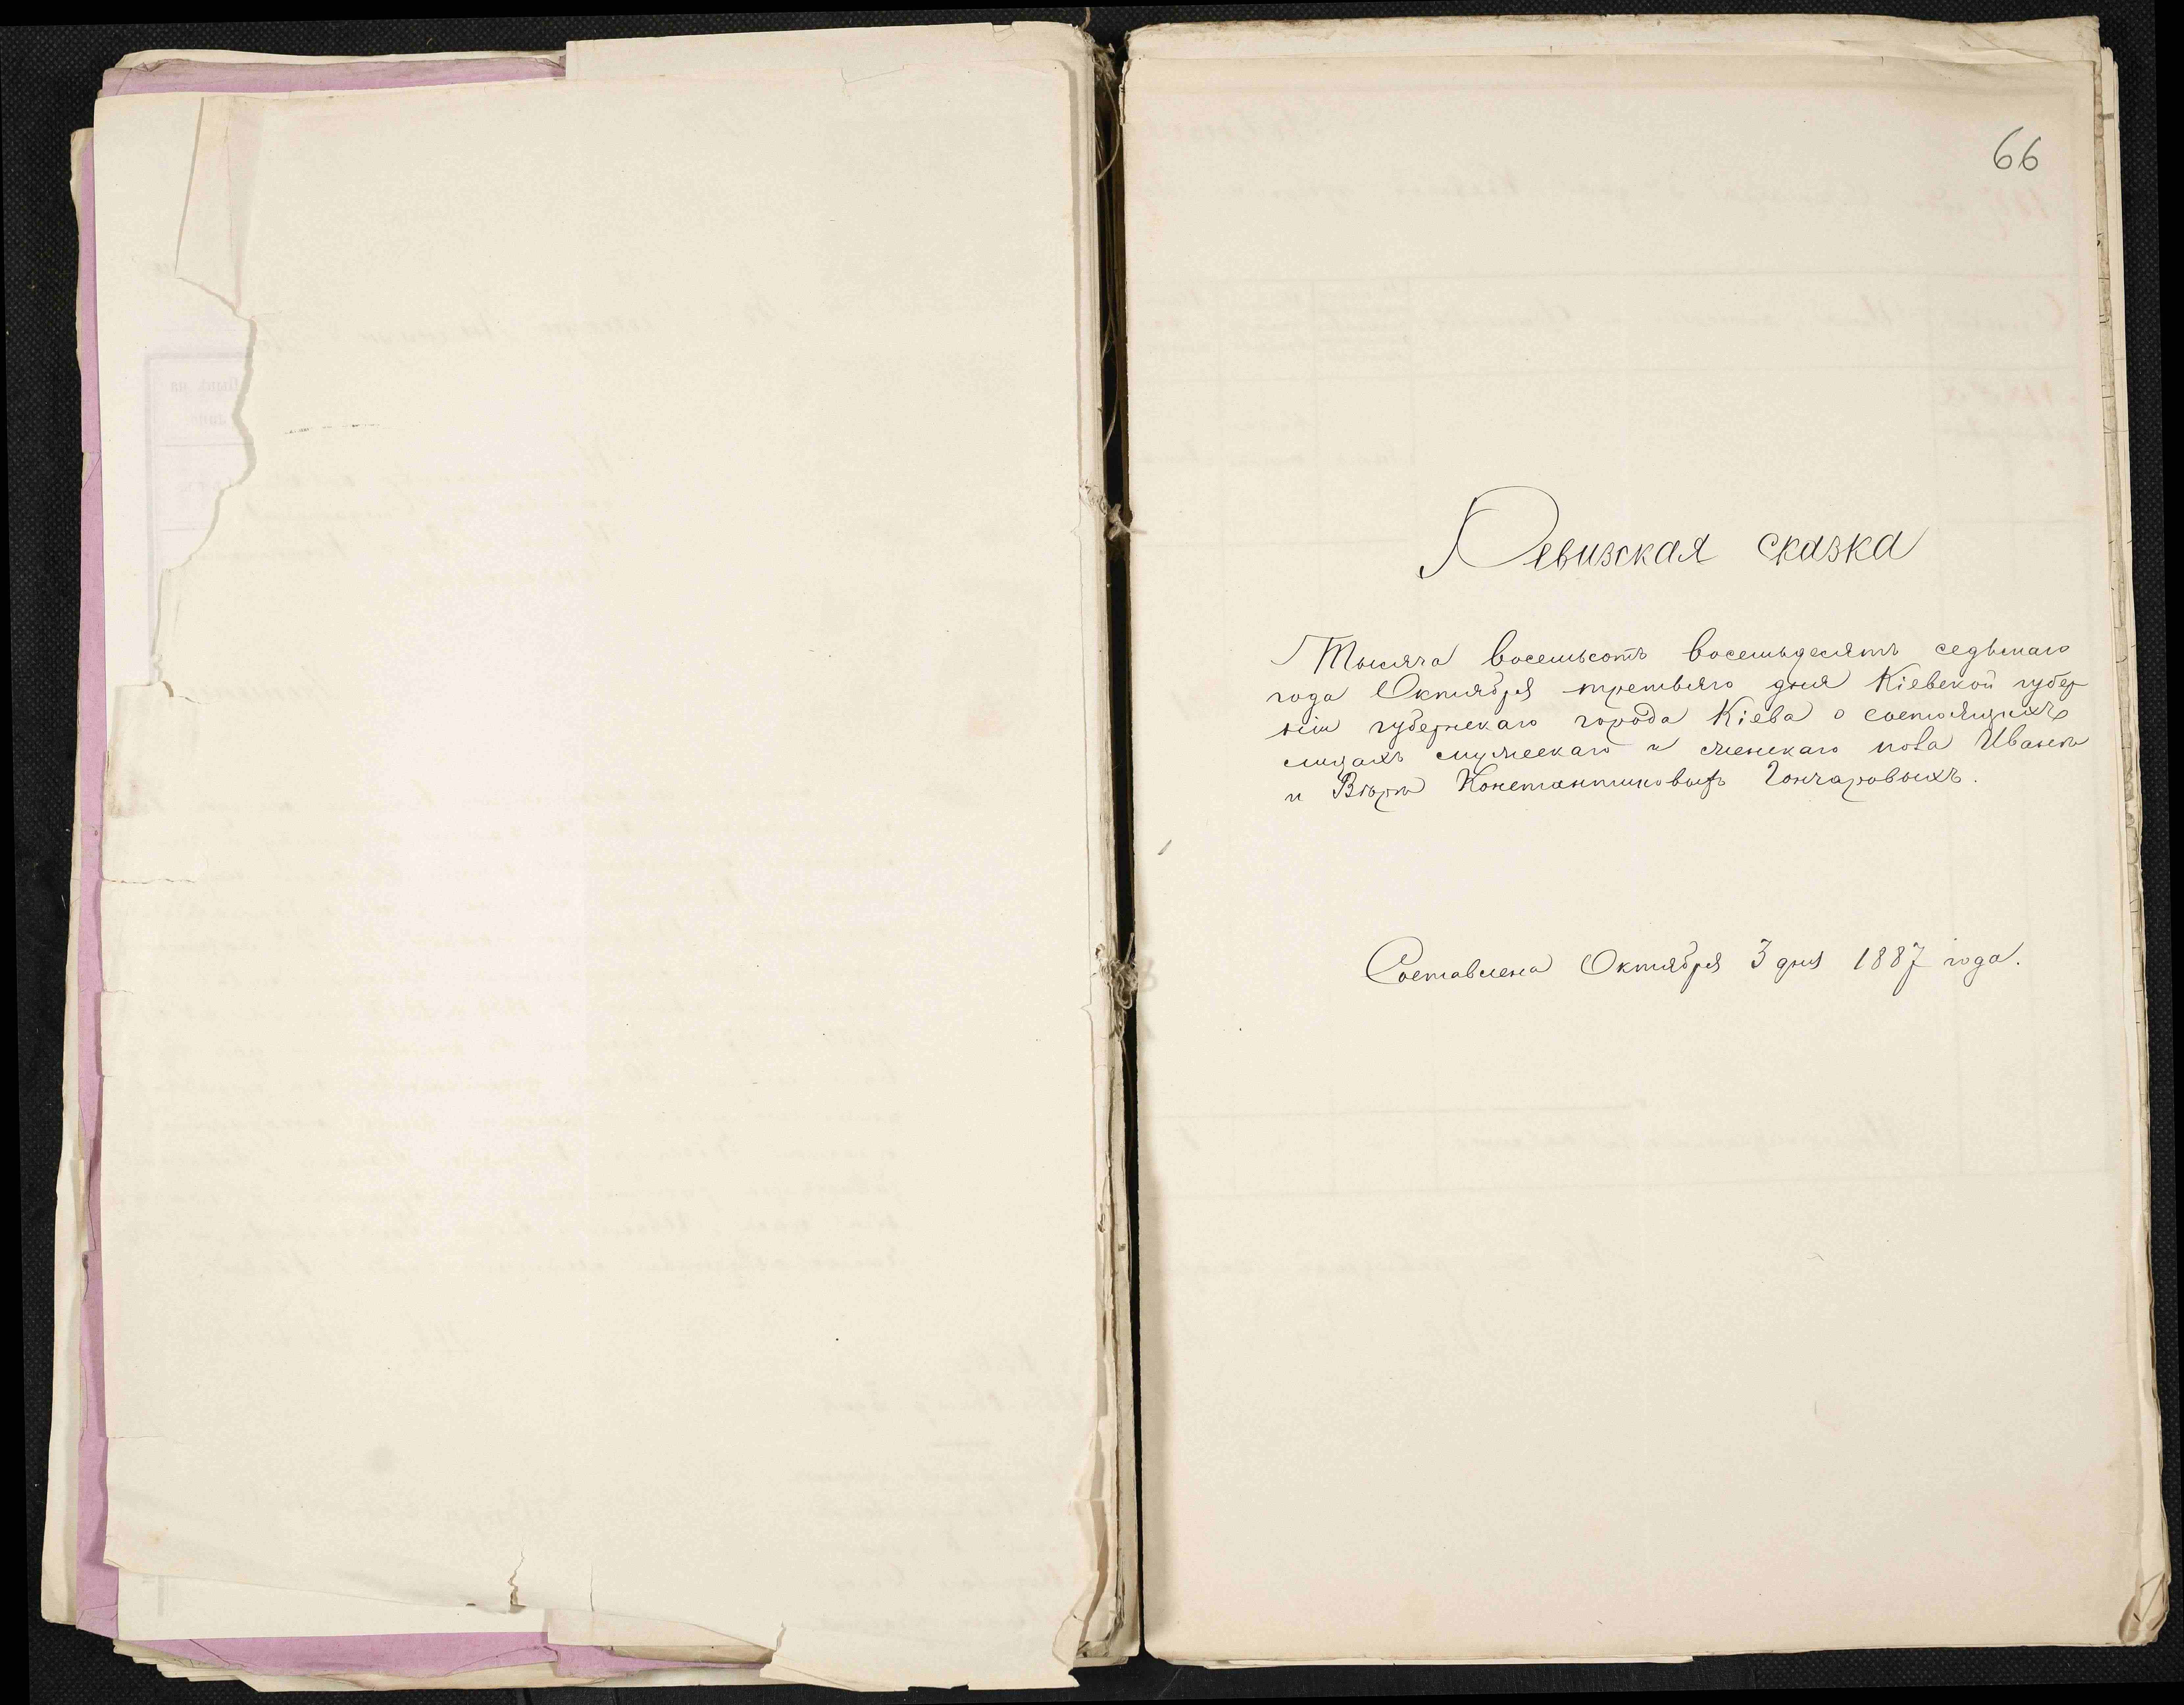 66
Ревизская сказка
Тысяча восемьсотъ восемьдесятъ седьмаго
года Октября третьяго дня Кіевской губер
ніи губернскаго города Кіева о состоящихъ
лицахъ мужескаго и женскаго пола Иванѣ
и Вѣрѣ Константиновыхъ Гончаровыхъ.
Составлена Октября 3 дня 1887 года.